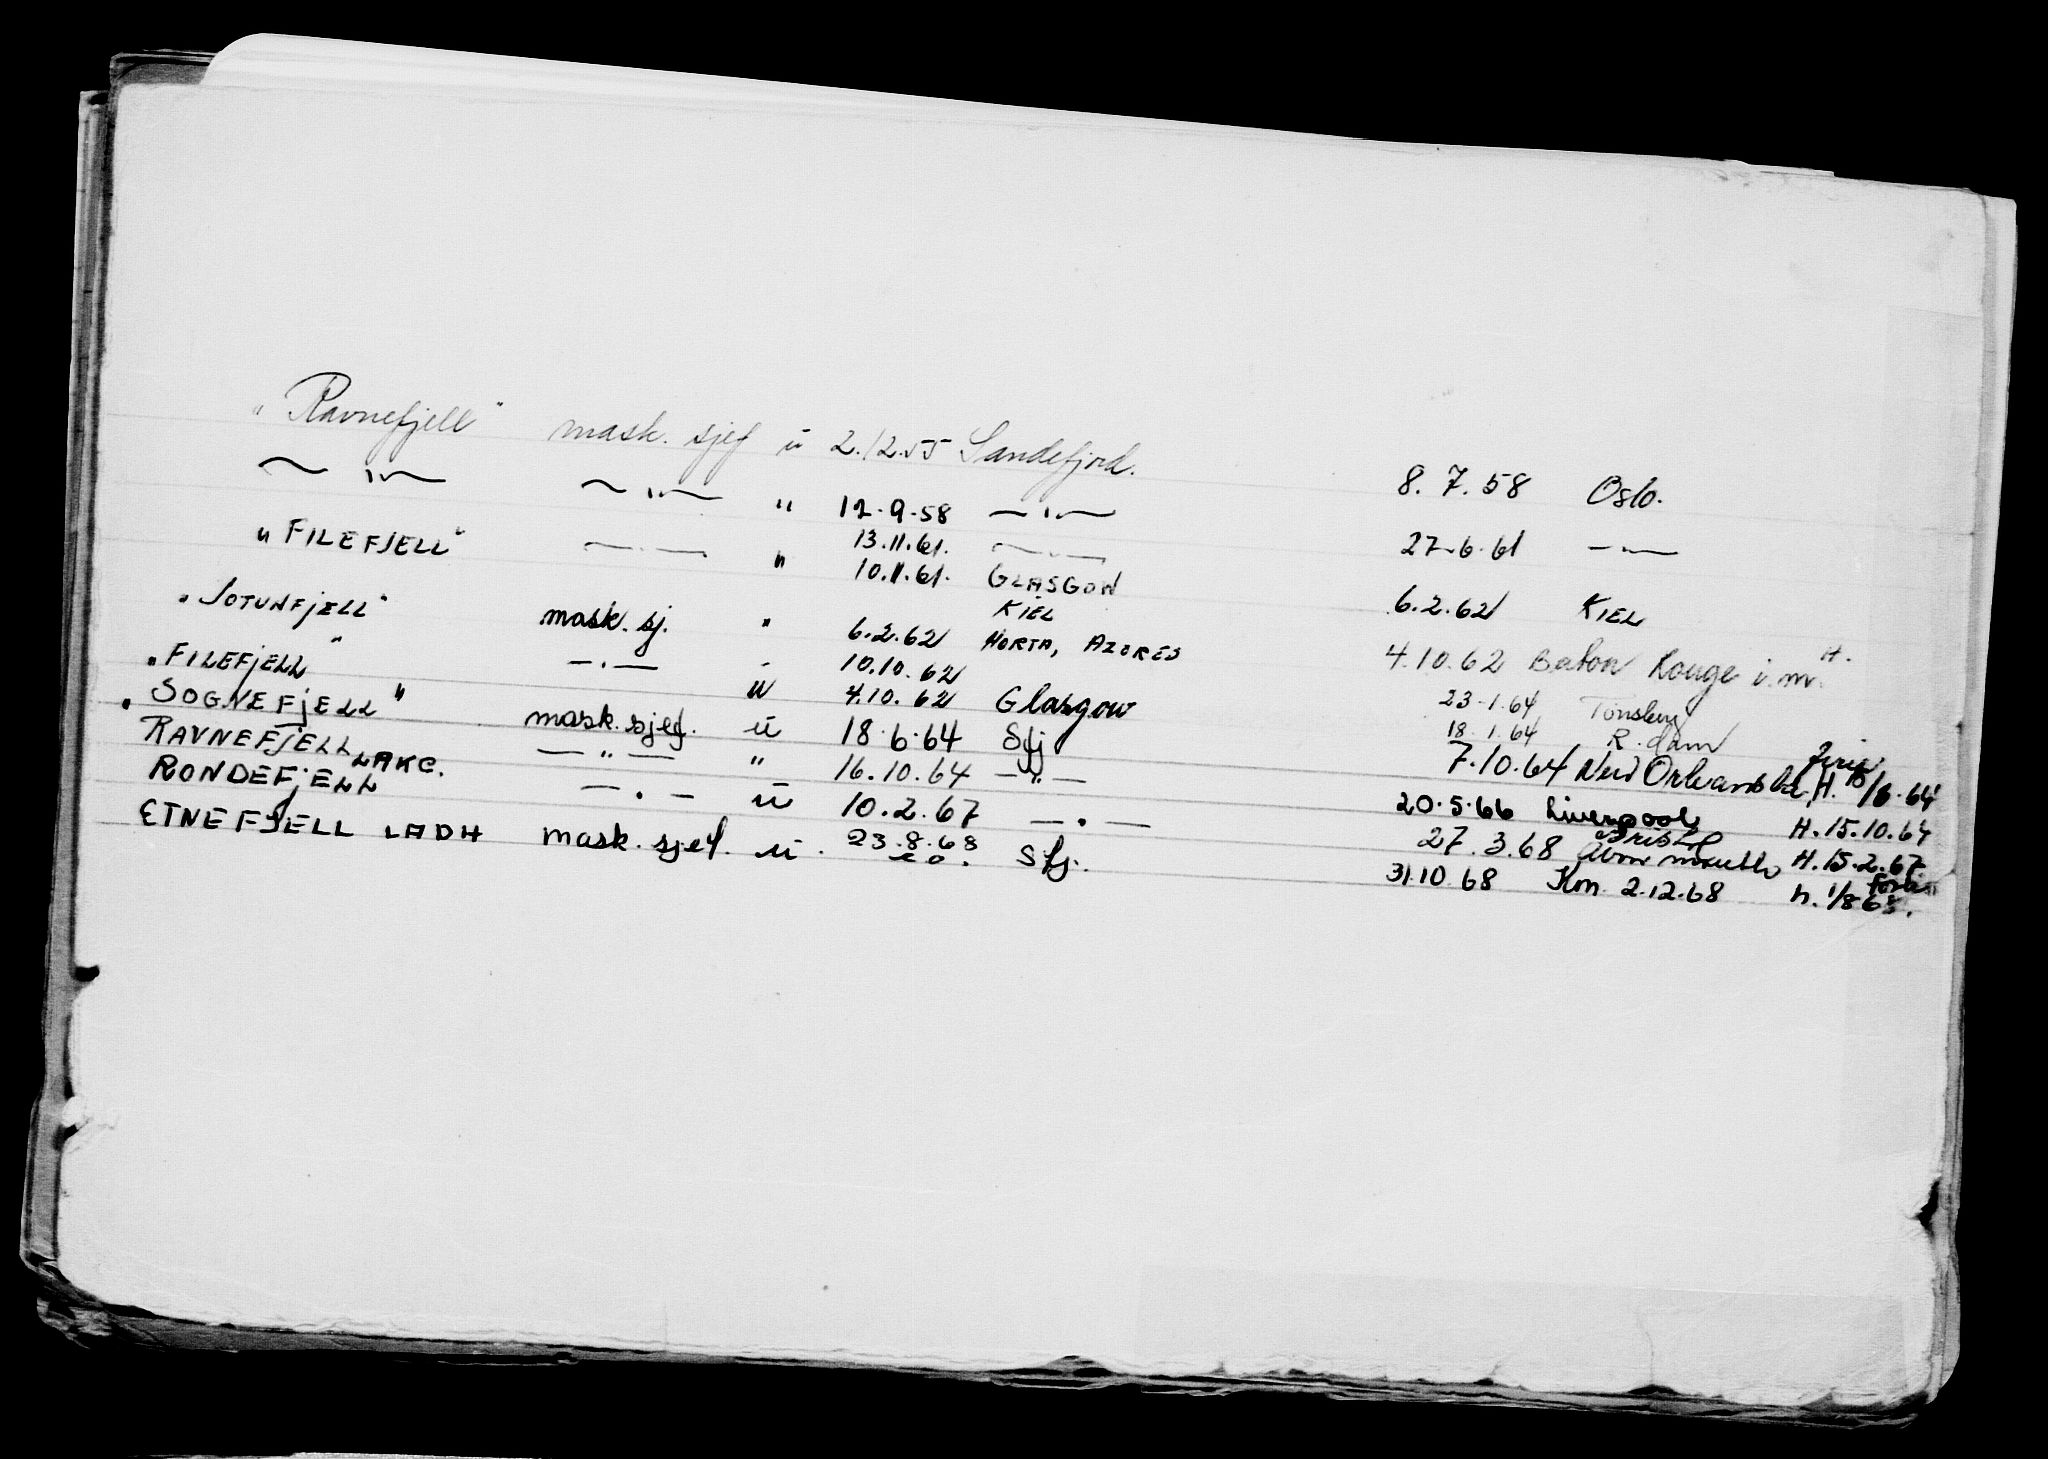 "Ravnefjell" mask. sjef u 2.12.55 Sandefjord. 8.7.58 Oslo.
— " — — " — " 12.9.58 — " — 27.6.61 — " —
13.11.61. — " —
"FILEFJELL" — " — " 10.11.61. GLASGOW 6.2.62 KIEL
KIEL
"JOTUNFJELL" mask. sj. " 6.2.62 HORTA, AZORES 4.10.62 Baton Rouge i.m. H.
10.10.62 23.1.64 Tønsberg
"FILEFJELL" — " — u 4.10.62 Glasgow 18.1.64 R.dam
"SOGNEFJELL" mask. sjef. u 18.6.64 Sfj 7.10.64 New Orleans H. 15/6.64
RAVNEFJELL LAKC. — " — " 16.10.64 — " — 20.5.66 Liverpool H. 15.10.64
RONDEFJELL — " — u 10.2.67 — " — 27.3.68 Avonmouth H. 15.2.67.
Bristol
ETNEFJELL LADH mask. sjef. u. 23.8.68 Sfj. 31.10.68 Kon. 2.12.68 h. 1/8 68.